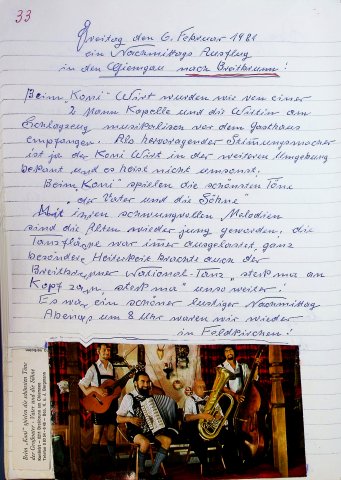 33
Freitag den 6. Februar 1981
ein Nachmittags Ausflug
in den Chiemgau nach Breitbrunn!
Beim "Koni" Wirt wurden wir von einer
2 Mann Kapelle und die Wirtin am
Schlagzeug musikalisch vor dem Gasthaus
empfangen. Als hervoragender Stimmungsmacher
ist ja der Koni Wirt in der weiteren Umgebung
bekant und es heist nicht umsonst,
Beim Koni" spielen die schönsten Töne
"der Vater und die Söhne"
Mit ihren schwungvollen Melodien
sind die Alten wieder jung geworden, die
Tanzfläche war imer ausgelastet, ganz
besondere Heiterkeit brachte auch der
Breitbrunner National-Tanz
Kopf
usw weiter!
Es war ein schöner lustiger Nachmittag
Abends um 8 Uhr waren wir wieder
in Feldkirchen!
Beim „Koni" spielen die schönsten Töne
der Großvater - Vater und die Söhne